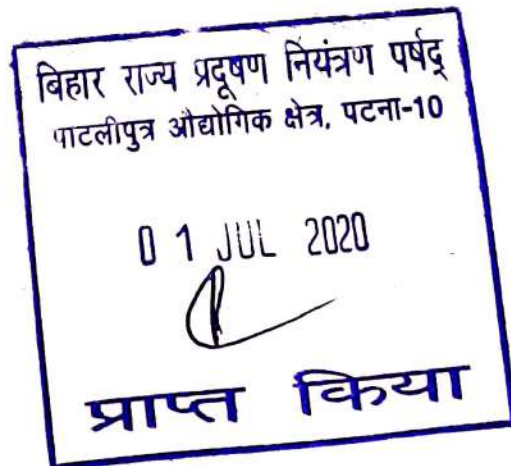 बिहार राज्य प्रदूषण नियंत्रण पर्षद्
पाटलीपुत्र औद्योगिक क्षेत्र, पटना-10
0 1 JUL 2020
प्राप्त किया